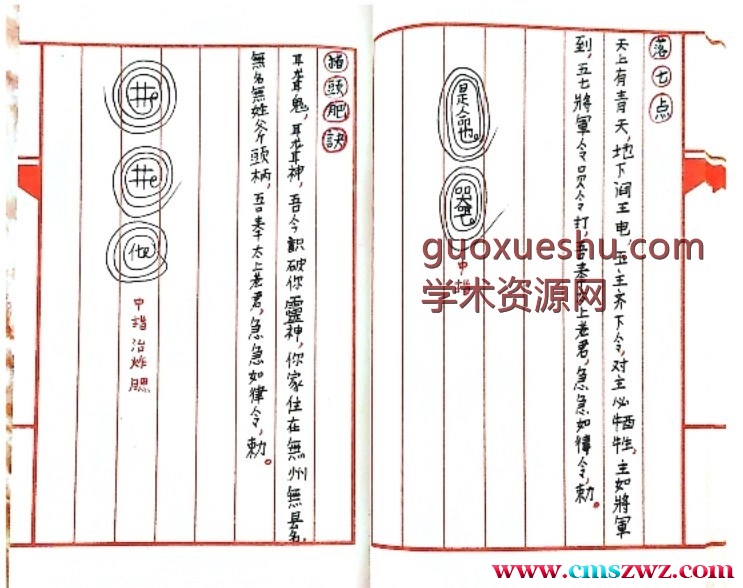 落七点
天上有青天，地下润王电，五主齐下令，对主必牺牲，主如將軍
到，五七將軍令只令打，吾奉太上老君，急急如律令，勅。
是命也。
器
中指
猪頭肥訣
耳聋鬼，耳聋神，吾今識破你靈神，你家住在無州無县名，
無名無姓父斤頭柄，吾奉太上老君，急急如律令，勅。
井e
井e
他e
中指治炸腮
guoxueshu.com
学术资源网
www.cmszwz.com